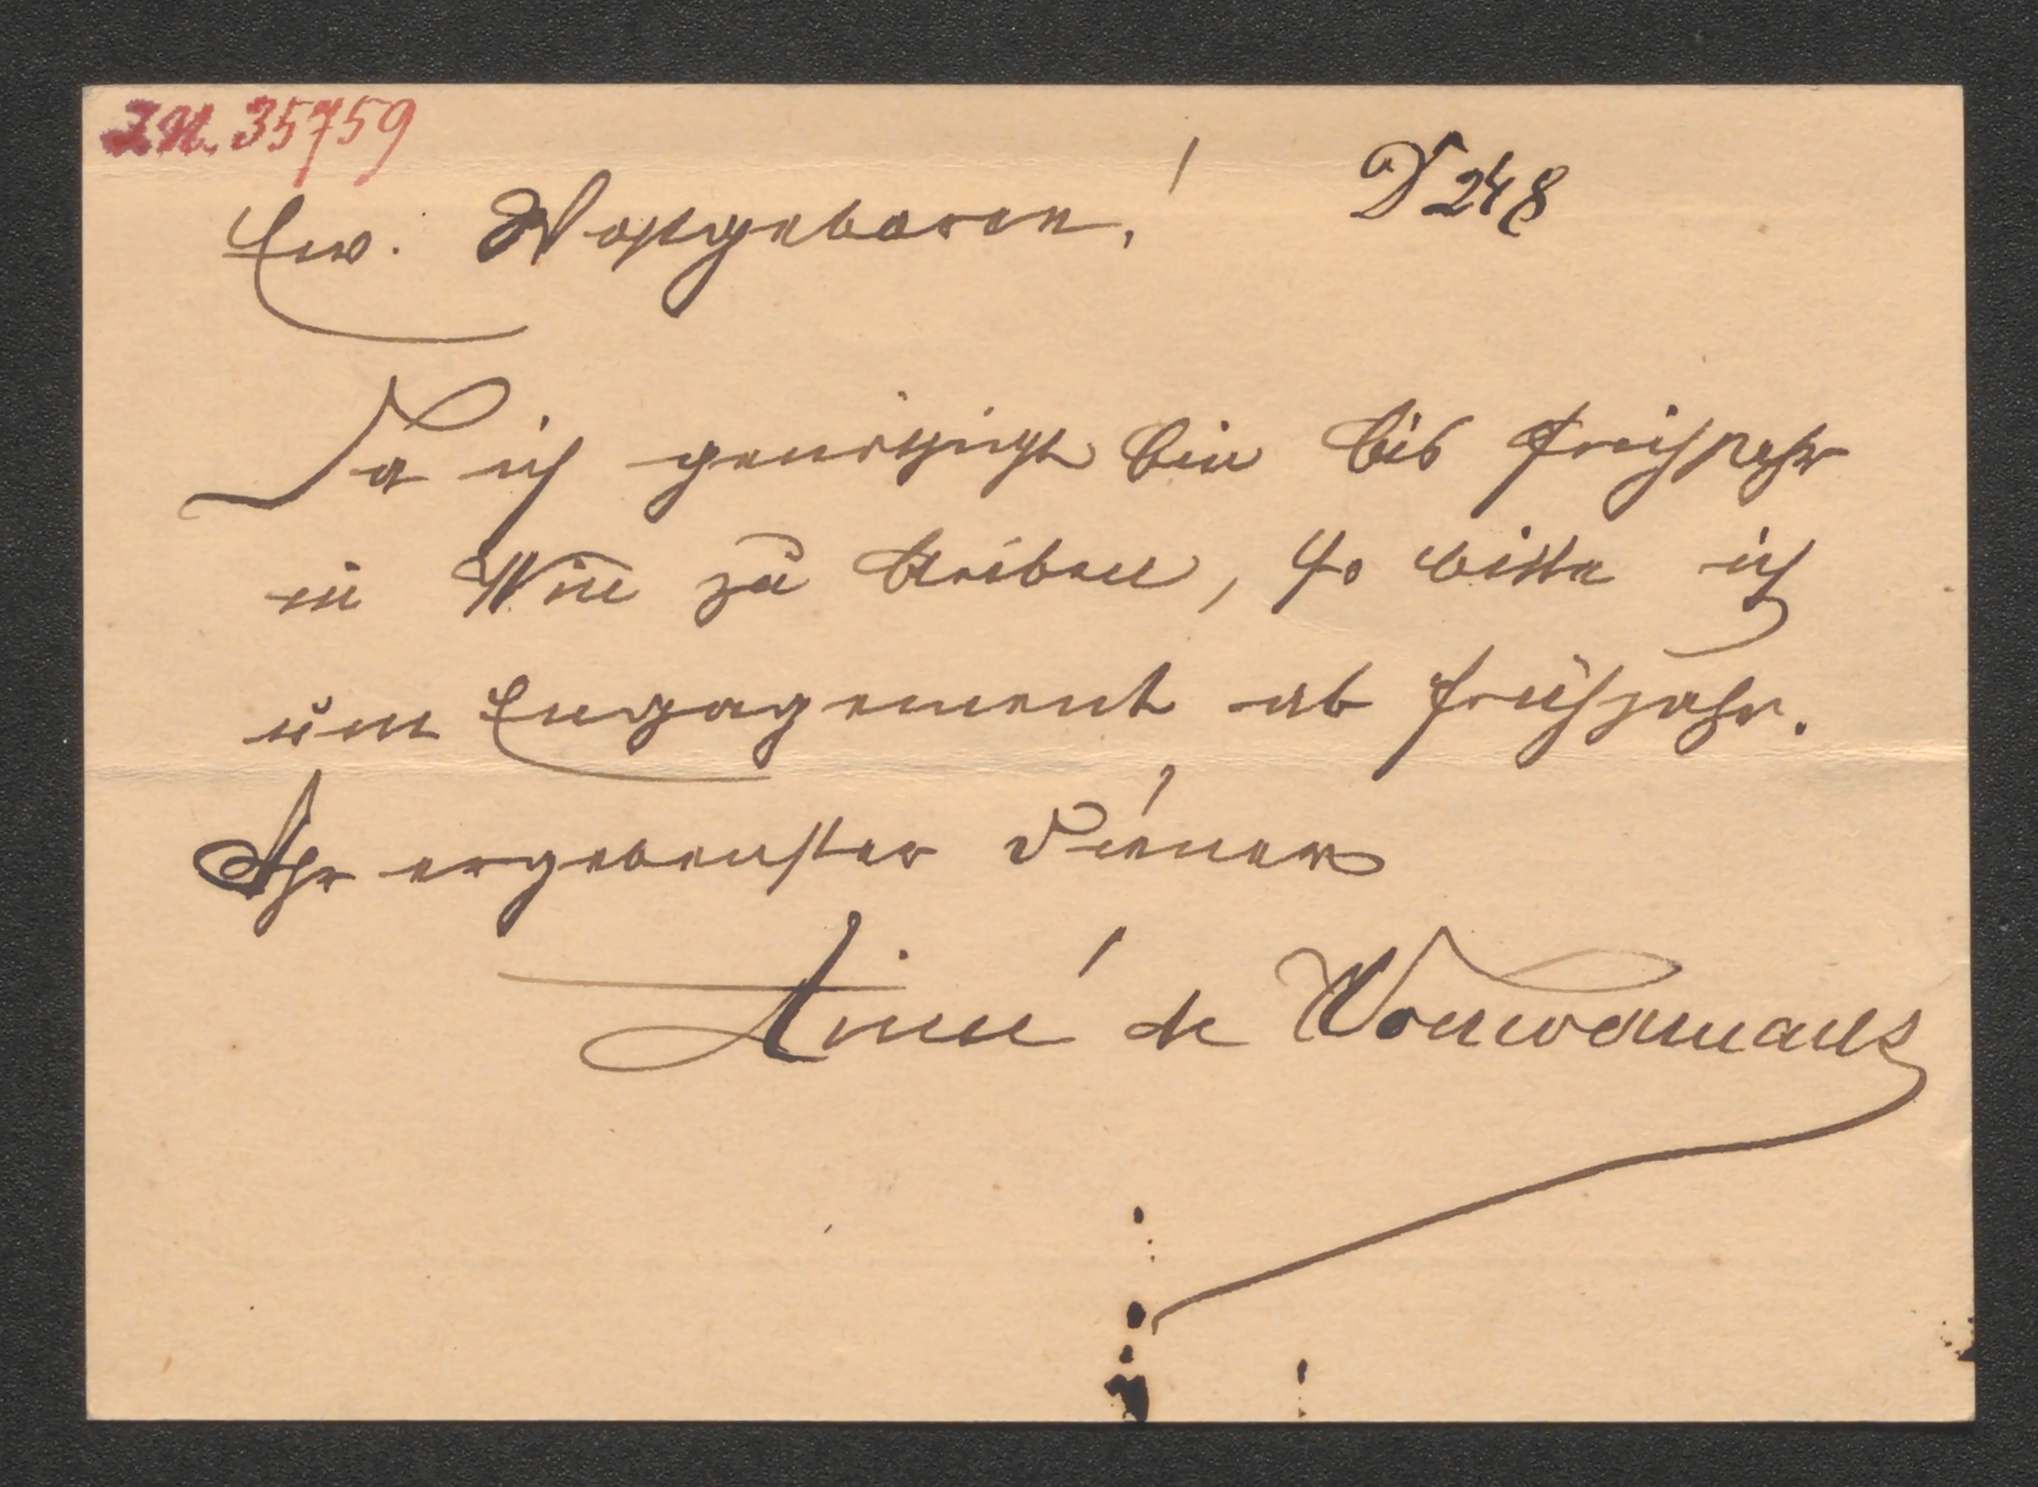 I.N. 35759
D 248
Ew. Wohlgeboren!
Da ich genöthigt bin bis Frühjahr
in Wien zu bleiben, so bitte ich
um Engagement ab Frühjahr.
Ihr ergebenster Diener
Aimé de Wouwermans